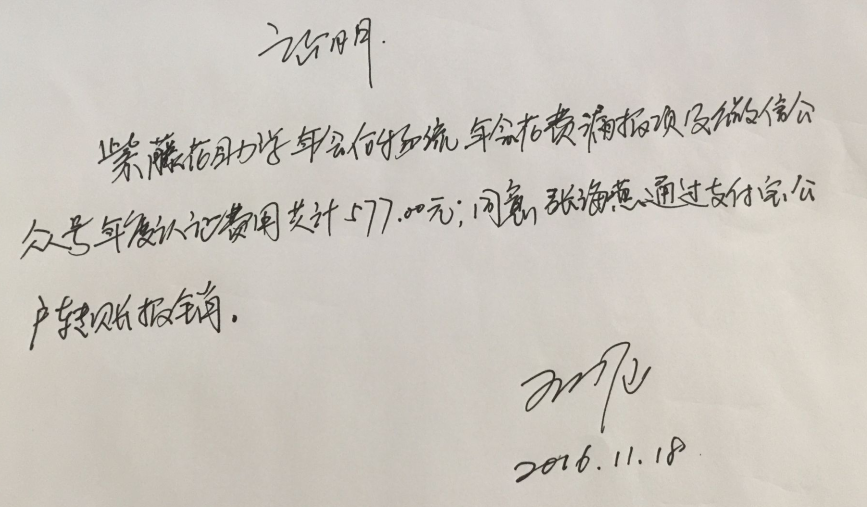 说明
紫藤花助学年会 年会花费漏报项及微信公
众号年度认证费用共计577.00元;同意张海燕通过支付宝公
户转账报销.
2016.11.18